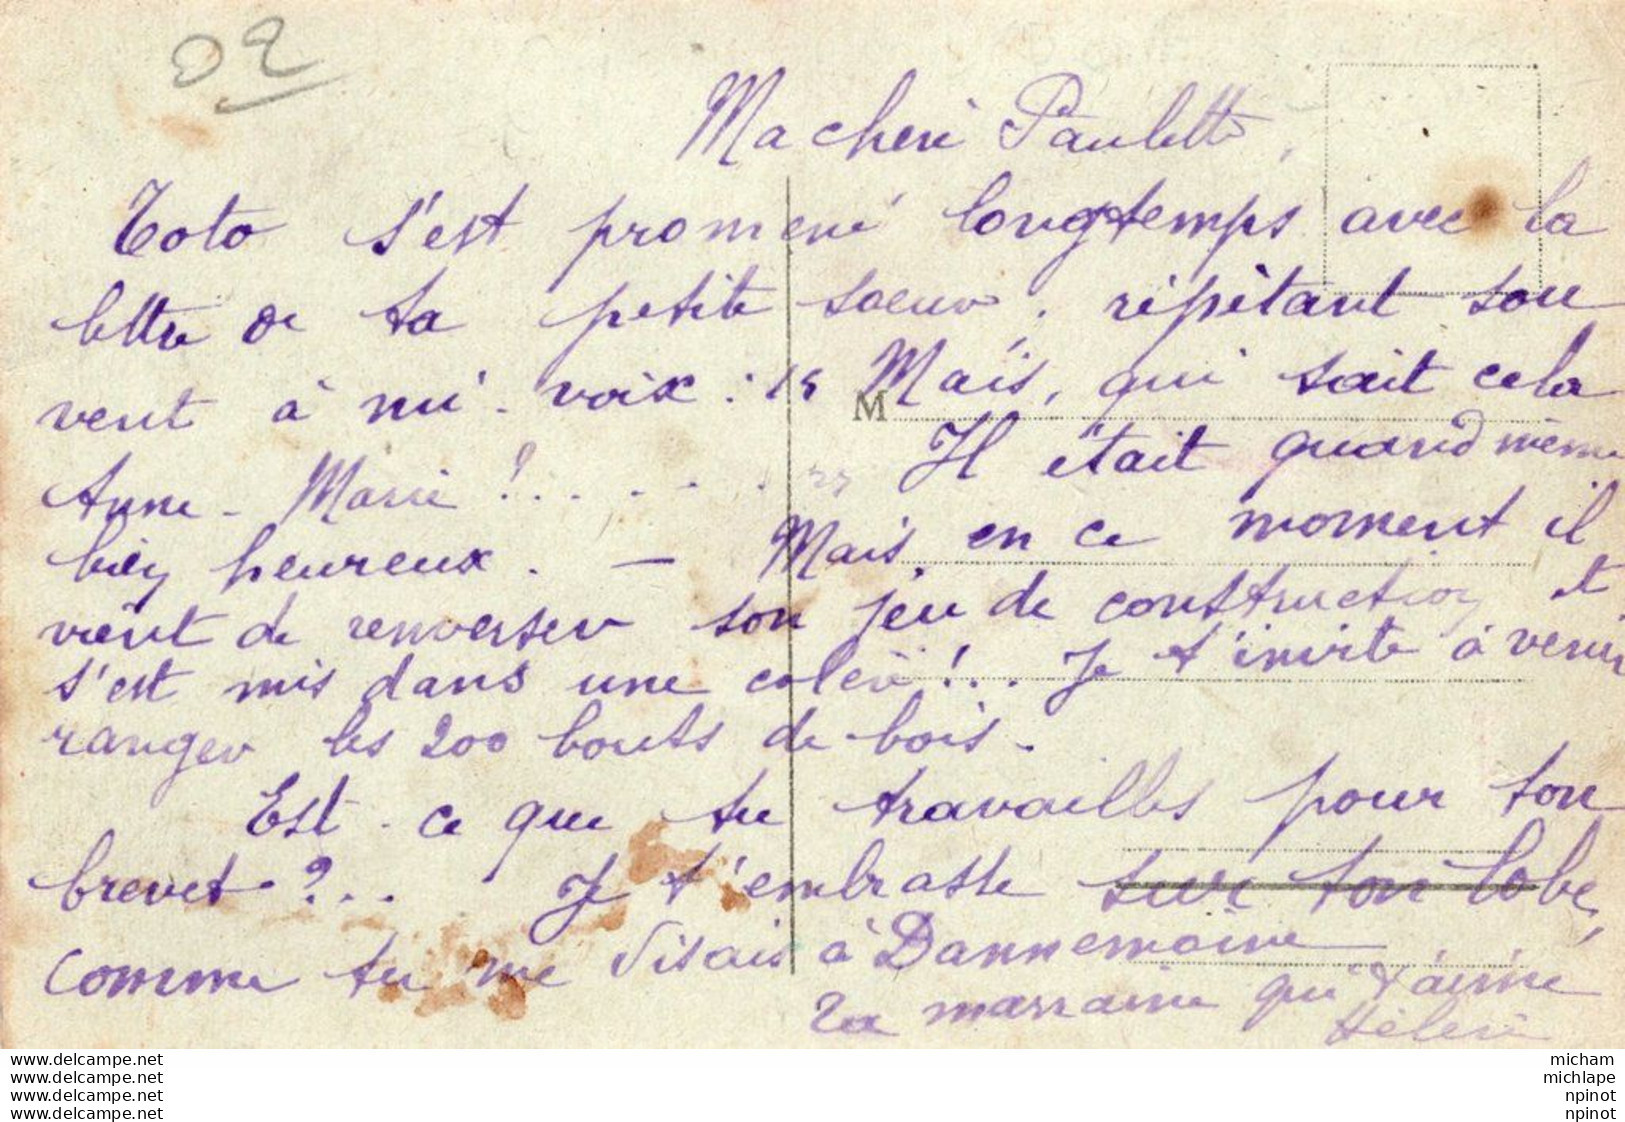 02
Ma chérie Paulette,
Toto s'est promené longtemps avec la
lettre de ta petite soeur, répétant sou
vent à mi-voix : 15 Mais, qui sait cela
Anne-Marie ?....... Il était quand même
bien heureux. — Mais, en ce moment il
M
vient de renverser son jeu de construction et
s'est mis dans une colère !... Je t'invite à venir
ranger les 200 bouts de bois.
Est-ce que tu travailles pour ton
brevet ?... Je t'embrasse sur ton lobe,
comme tu me disais à Dannemoine
Ta marraine qui t'aime
Hélène
www.delcampe.net
www.delcampe.net
www.delcampe.net
www.delcampe.net
micham
michlape
npinot
npinot